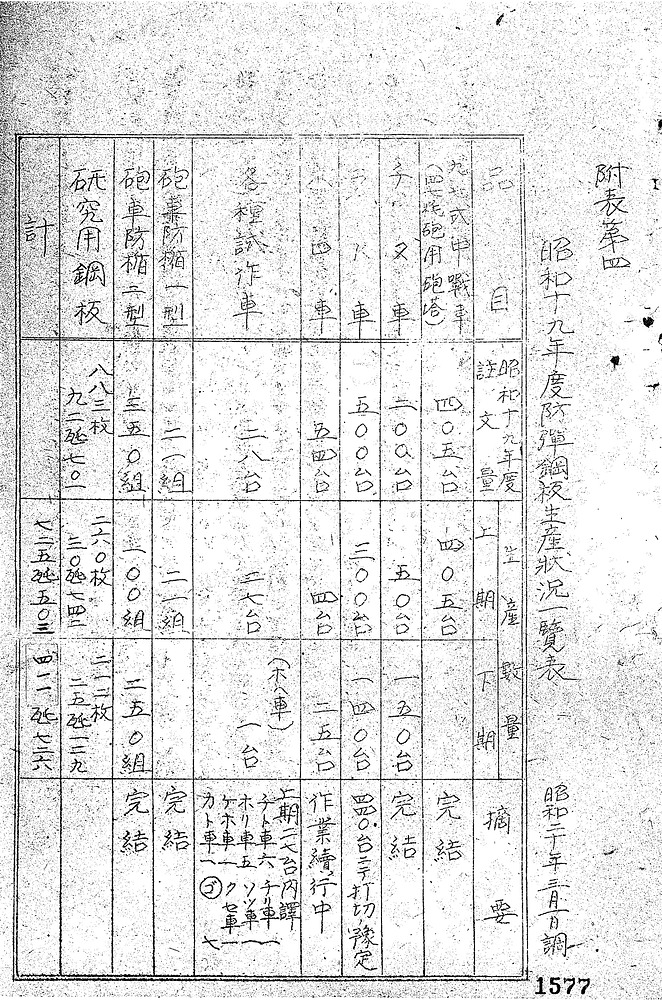 附表第四
昭和十九年度防彈鋼板生産狀況一覽表
昭和二十年三月一日調
品目
昭和十九年度註文量
生産數量
上期
下期
摘要
九七式中戰車（四七粍砲用砲塔）
四〇五台
四〇五台
完結
チヌ車
二〇〇台
五〇台
一五〇台
完結
車
五〇〇台
三〇〇台
一四〇台
四四〇台ニテ打切ノ豫定
四車
五四台
四台
二五台
作業續行中
各種試作車
二八台
二七台
（ホハ車）
一台
上期二七台内譯
チト車六 チリ車一
ホリ車五 ソツ車一
ケホ車一 クセ車一
カト車一 七
砲車防楯一型
二一組
二一組
完結
砲車防楯二型
三五〇組
一〇〇組
二五〇組
完結
研究用鋼板
八八三枚
九二瓲七〇一
二六〇枚
三〇瓲七四二
二一二枚
二五瓲一二九
計
七二五瓲五〇三
四一一瓲七二六
1577